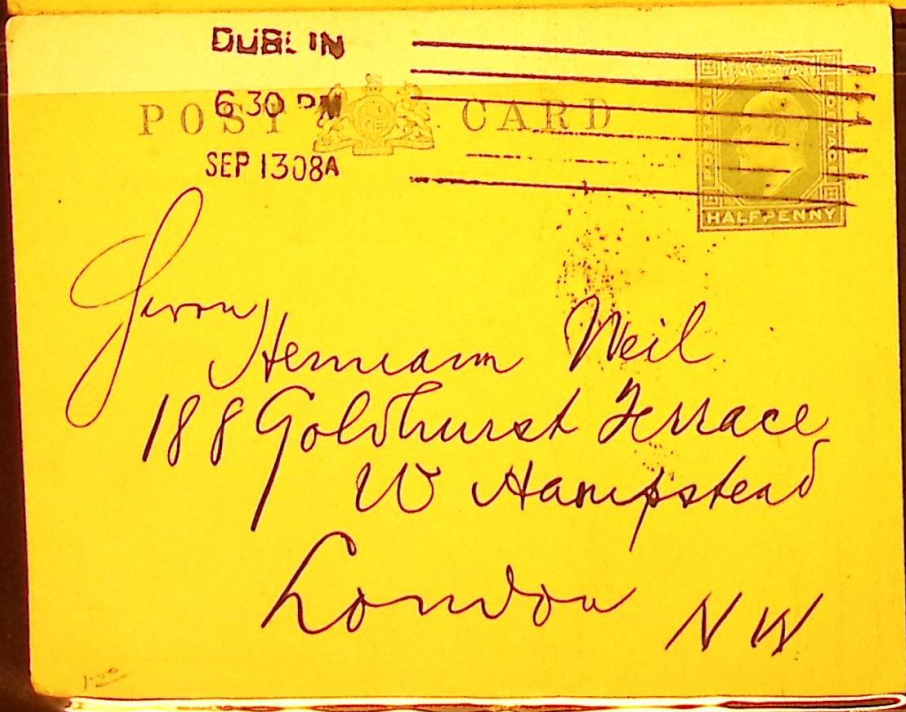 DUBLIN
6.30 PM
POST CARD
SEP 13 08 A
HALFPENNY
Herrn
Hermann Weil
188 Goldhurst Terrace
W Hampstead
London NW